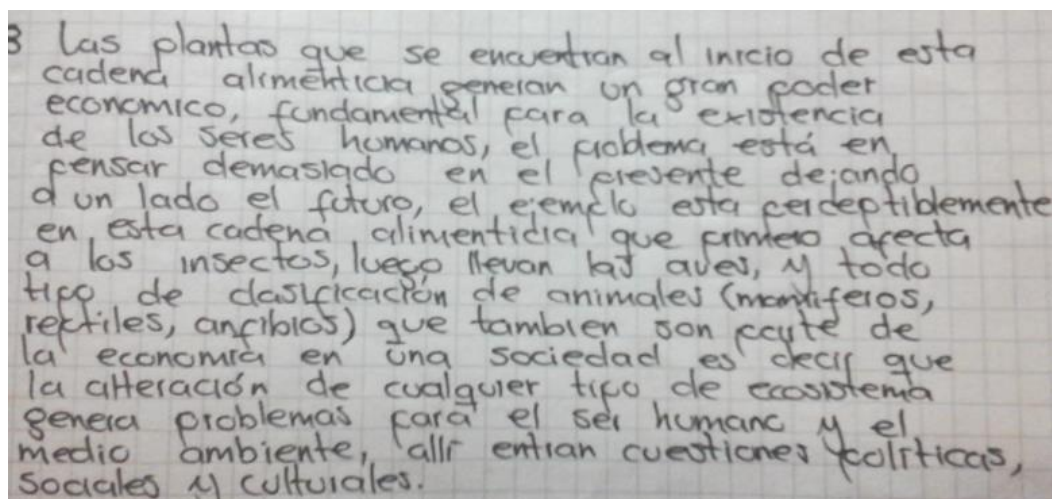 3 Las plantas que se encuentran al inicio de esta
cadena alimenticia generan un gran poder
economico, fundamental para la existencia
de los seres humanos, el problema está en
pensar demasiado en el presente dejando
a un lado el futuro, el ejemplo esta perceptiblemente
en esta cadena alimenticia que primero afecta
a los insectos, luego llevan las aves, y todo
tipo de clasificación de animales (mamiferos,
reptiles, anfibios) que tambien son parte de
la economía en una sociedad es decir que
la alteración de cualquier tipo de ecosistema
genera problemas para el ser humano y el
medio ambiente, allí entran cuestiones políticas,
sociales y culturales.